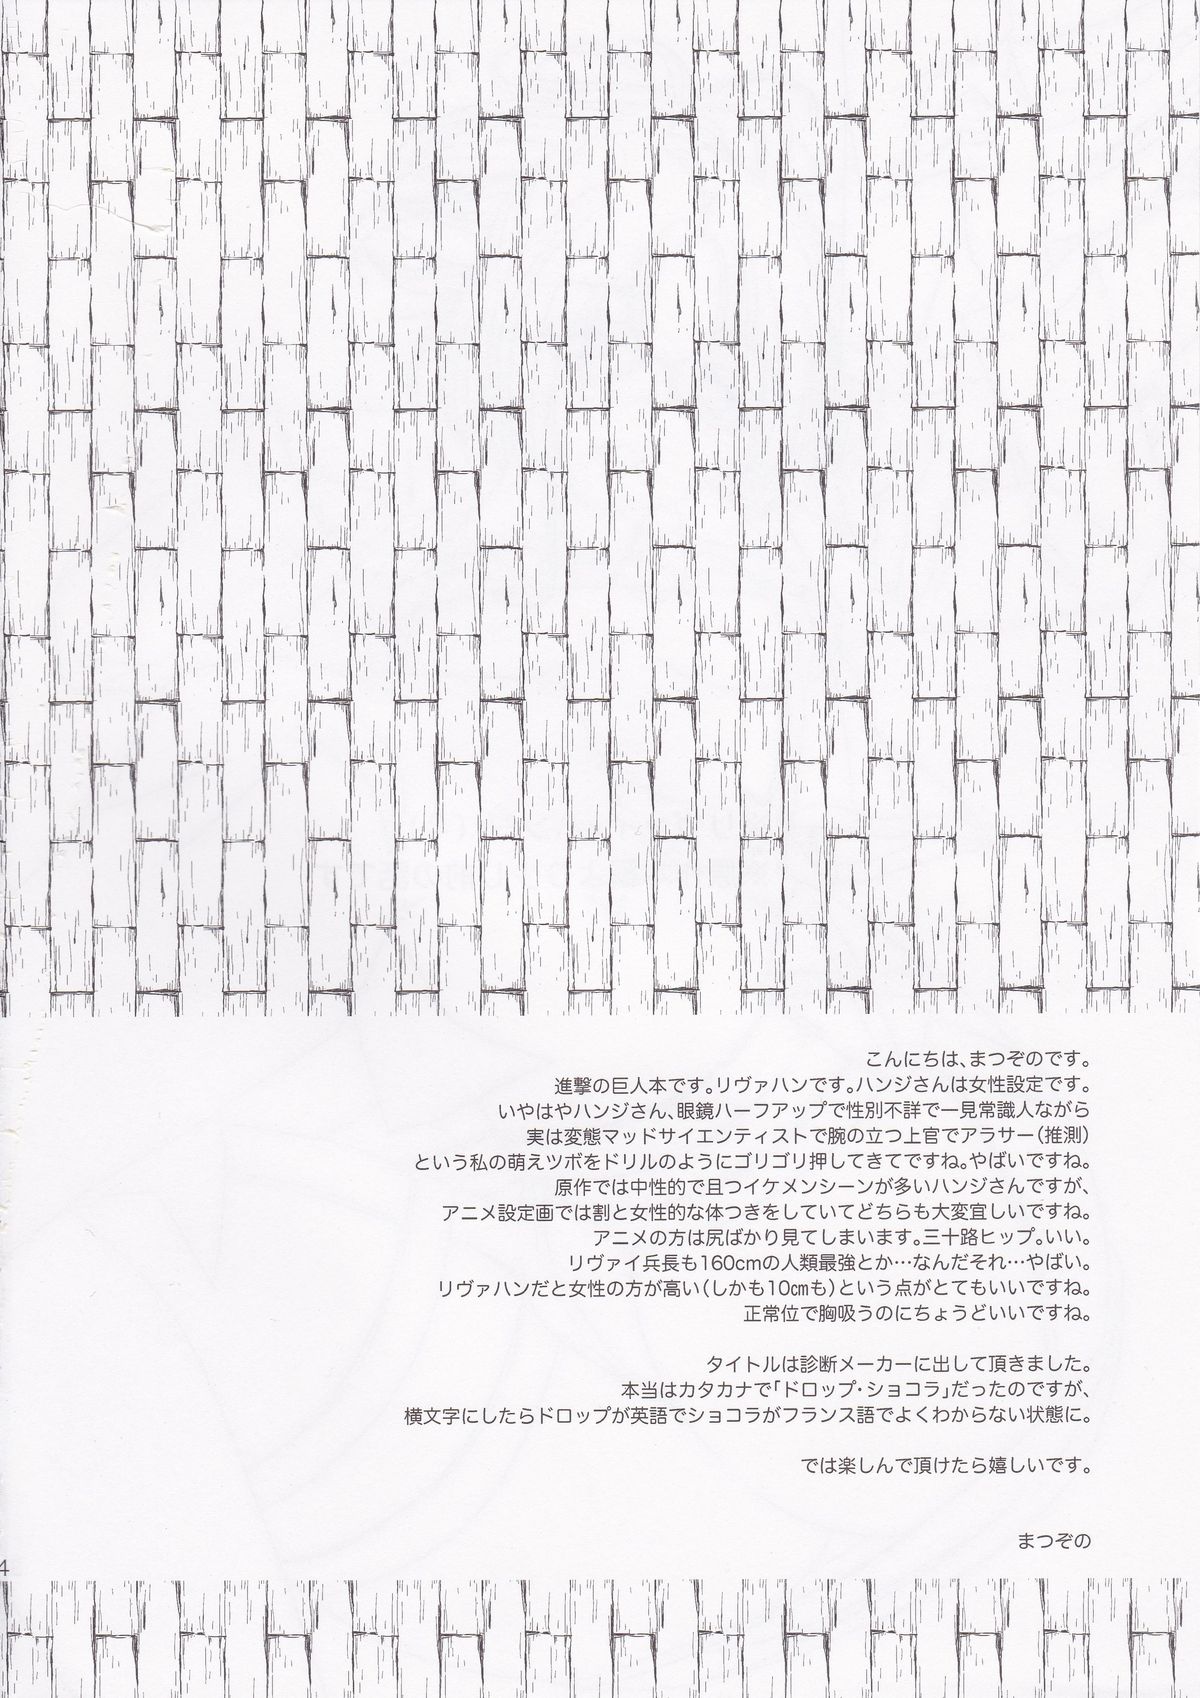 こんにちは、まつぞのです。
進撃の巨人本です。リヴァハンです。ハンジさんは女性設定です。
いやはやハンジさん、眼鏡ハーフアップで性別不詳で一見常識人ながら
実は変態マッドサイエンティストで腕の立つ上官でアラサー（推測）
という私の萌えツボをドリルのようにゴリゴリ押してきてですね。やばいですね。
原作では中性的で且つイケメンシーンが多いハンジさんですが、
アニメ設定画では割と女性的な体つきをしていてどちらも大変宜しいですね。
アニメの方は尻ばかり見てしまいます。三十路ヒップ。いい。
リヴァイ兵長も160cmの人類最強とか…なんだそれ…やばい。
リヴァハンだと女性の方が高い（しかも10㎝も）という点がとてもいいですね。
正常位で胸吸うのにちょうどいいですね。
タイトルは診断メーカーに出して頂きました。
本当はカタカナで「ドロップ・ショコラ」だったのですが、
横文字にしたらドロップが英語でショコラがフランス語でよくわからない状態に。
では楽しんで頂けたら嬉しいです。
まつぞの
4